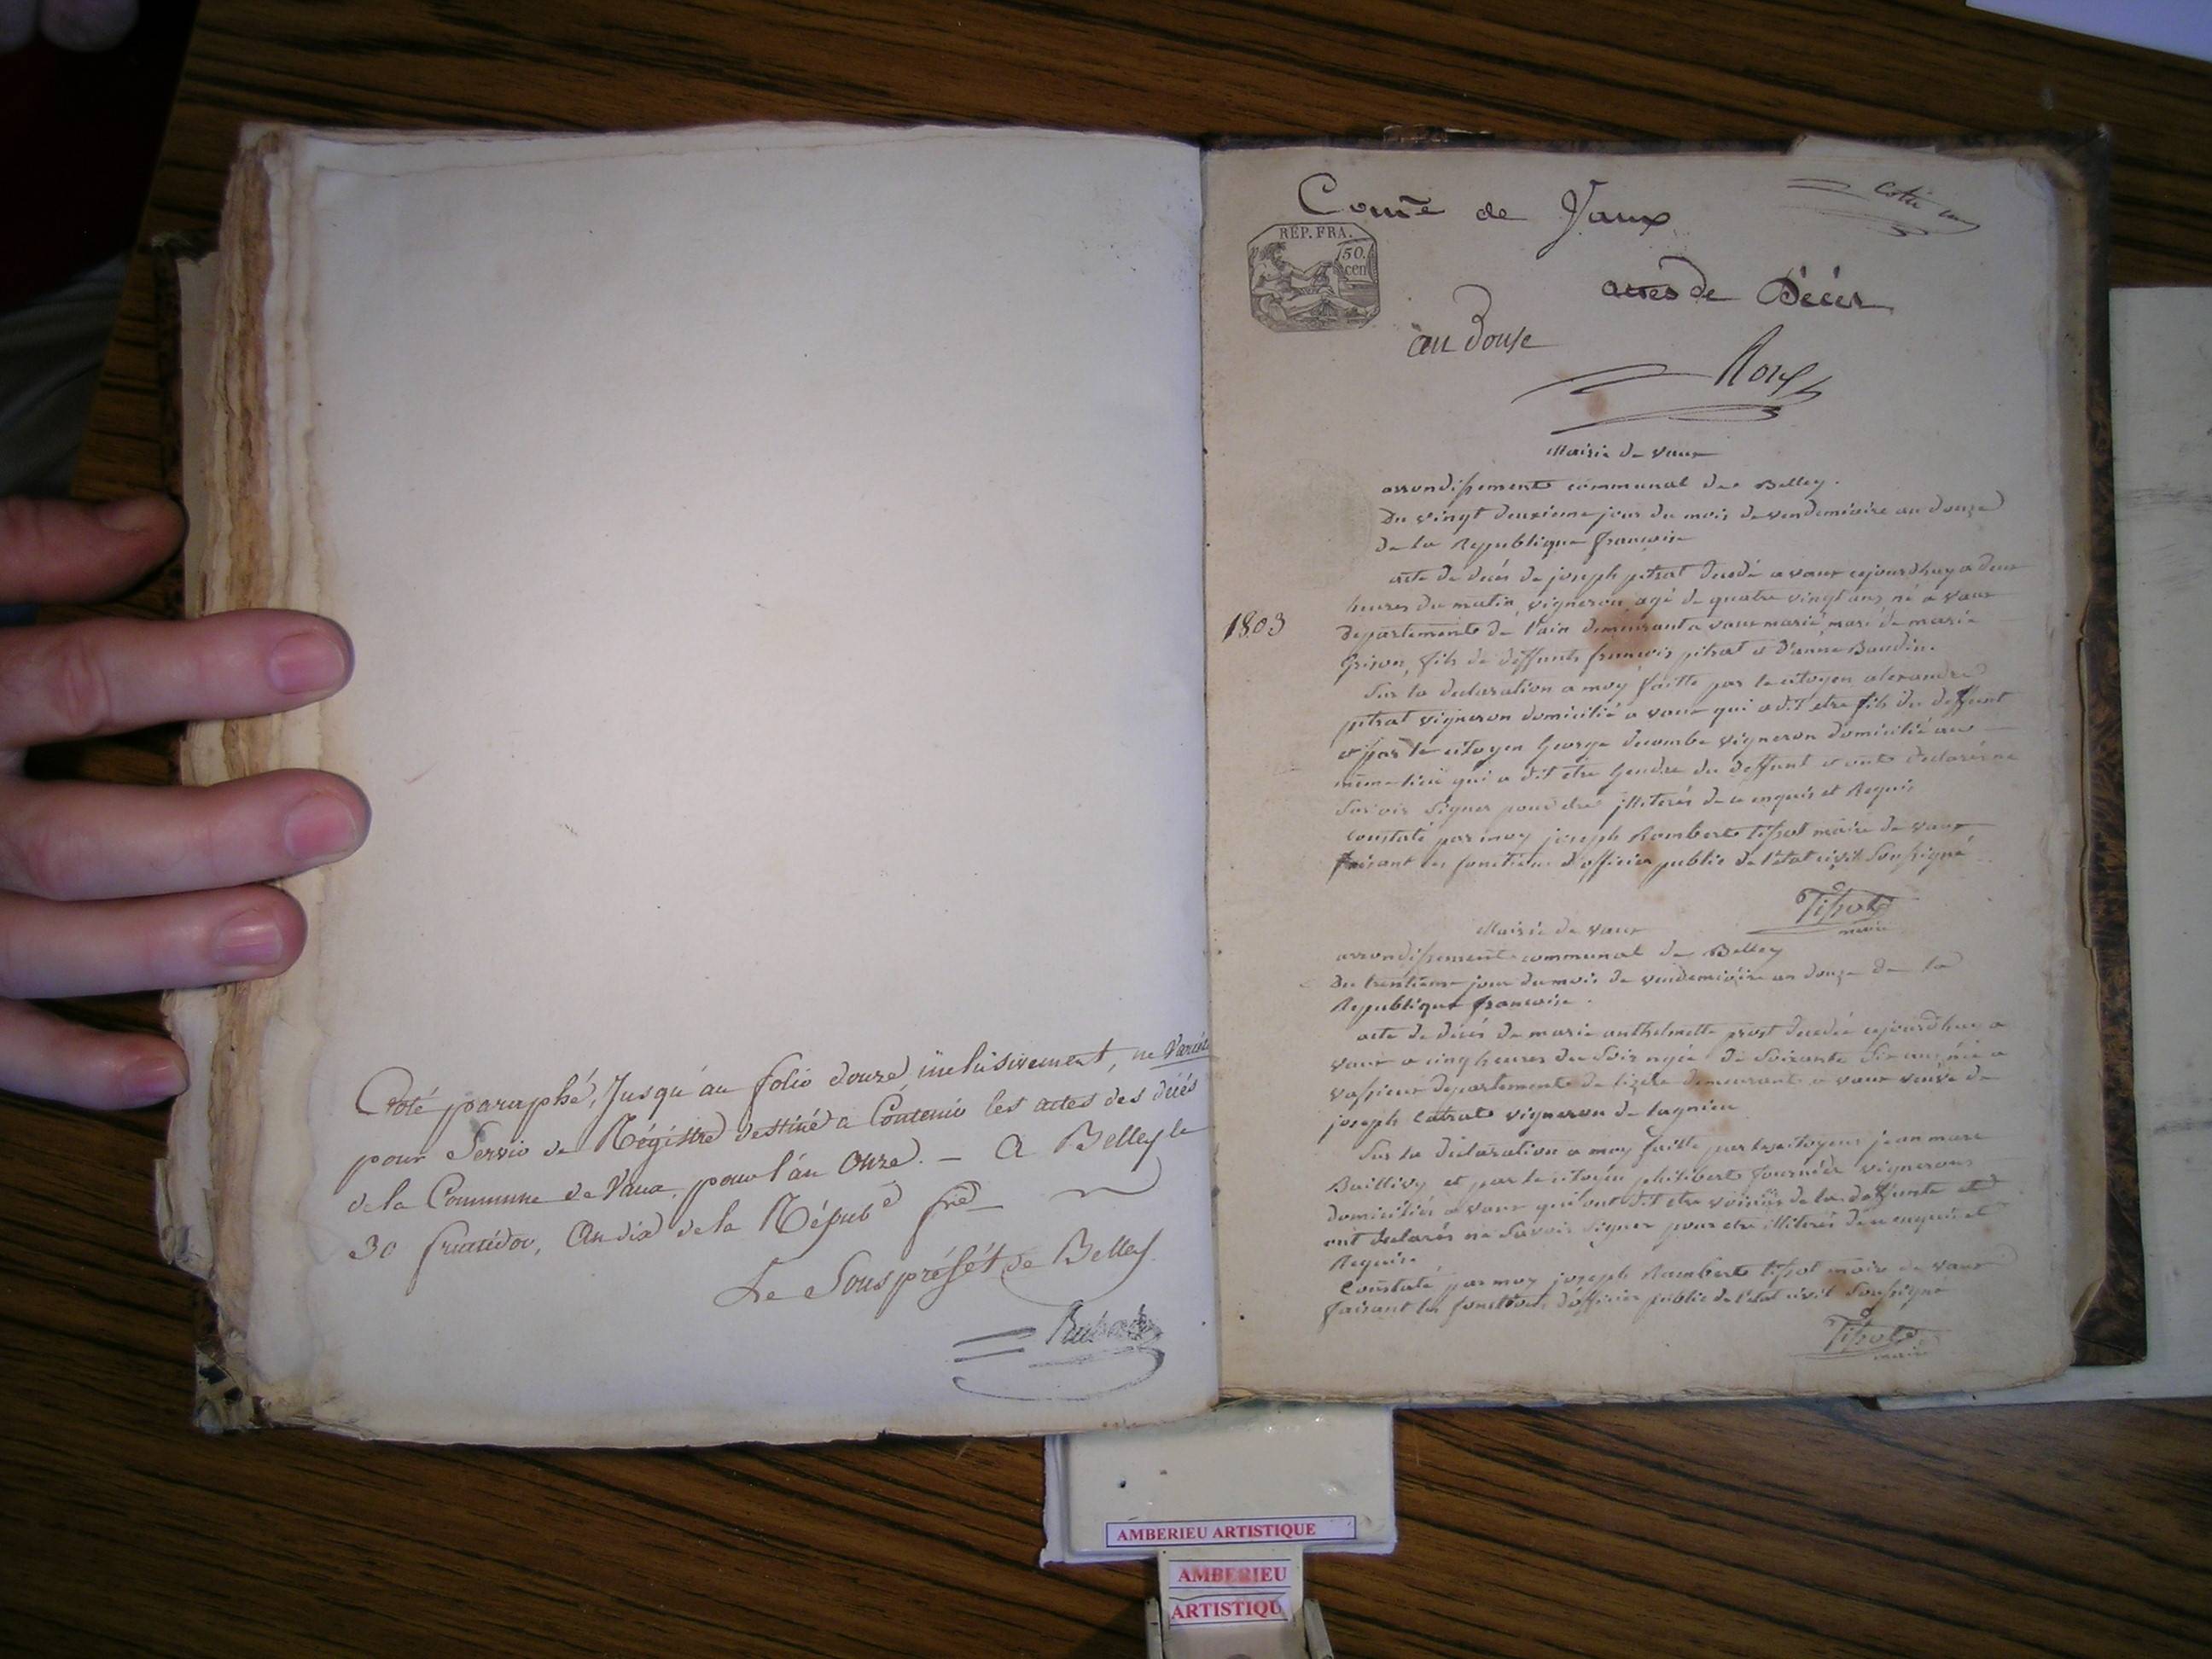 Coté paraphé, Jusqu'au folio douze inclusivement, ne Variétur
pour Servir de Régistre destiné a Contenir les actes des décés
de la Commune de Vaux, pour l'an Onze. — A Belley le
30 fructidor, An dix de la Répub^e fse
Le Sous préfét de Belley
Com̄e de Vaux
REP. FRA.
50.
cen
actes de Décès
an Douse
Mairie de vaux
arrondissement communal de Belley.
Du vingt deuxieme jour du mois de vendemiaire an douze
de la Republique francoise
1803
acte de décés de joseph pitrat decedé a vaux cejourdhuy a deux
heures du matin, vigneron, agé de quatre vingt ans, né a vaux
departement de l'ain demeurant a vaux marié, mari de marie
Grison, fils de deffunts francois pitrat et d'anne Baudin.
Sur la declaration a moy faitte par le citoyen alexandre
pitrat vigneron domicilié a vaux qui a dit etre fils du deffunt
et par le citoyen George decombe vigneron domicilié au
meme lieu qui a dit etre Gendre du deffunt et ont declarés ne
Savoir Signer pour etre illiterés de ce enquis et Requis
Constaté par moy joseph Rambert tissot maire de vaux
faisant les fonctions d'officier public de l'etat civil Soussigné
Tissot
maire
Mairie de vaux
arrondissement communal de Belley
Du trentieme jour du mois de vendemiaire an douze de la
Republique francoise.
acte de décés de marie anthelmette prost decedée cejourdhuy a
vaux a cinq heures du Soir agée de Soixante Six ans, née a
departement de lizere demeurante a vaux veuve de
joseph vigneron de lagnieu
Sur la declaration a moy faitte par le citoyen jean marc
Baillivy et par le citoyen philibert fournier vignerons
domiciliés a vaux qui ont dit etre voisins de la deffunte et
ont declarés ne Savoir Signer pour etre illiterés de ce enquis et
Requis.
Constaté par moy joseph Rambert tissot maire de vaux
faisant les fonctions d'officier public de l'etat civil Soussigné
Tissot
maire
AMBERIEU ARTISTIQUE
AMBERIEU
ARTISTIQU